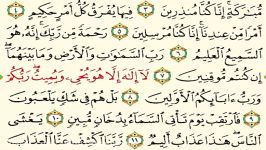 مُّبَٰرَكَةٍ إِنَّا كُنَّا مُنذِرِينَ ٣ فِيهَا يُفْرَقُ كُلُّ أَمْرٍ حَكِيمٍ ٤
أَمْرًا مِّنْ عِندِنَا إِنَّا كُنَّا مُرْسِلِينَ ٥ رَحْمَةً مِّن رَّبِّكَ إِنَّهُۥ هُوَ
ٱلسَّمِيعُ ٱلْعَلِيمُ ٦ رَبِّ ٱلسَّمَٰوَٰتِ وَٱلْأَرْضِ وَمَا بَيْنَهُمَآ
إِن كُنتُم مُّوقِنِينَ ٧ لَآ إِلَٰهَ إِلَّا هُوَ يُحْىِۦ وَيُمِيتُ رَبُّكُمْ
وَرَبُّ ءَابَآئِكُمُ ٱلْأَوَّلِينَ ٨ بَلْ هُمْ فِى شَكٍّ يَلْعَبُونَ
٩ فَٱرْتَقِبْ يَوْمَ تَأْتِى ٱلسَّمَآءُ بِدُخَانٍ مُّبِينٍ ١٠ يَغْشَى
ٱلنَّاسَ هَٰذَا عَذَابٌ أَلِيمٌ ١١ رَّبَّنَا ٱكْشِفْ عَنَّا ٱلْعَذَابَ